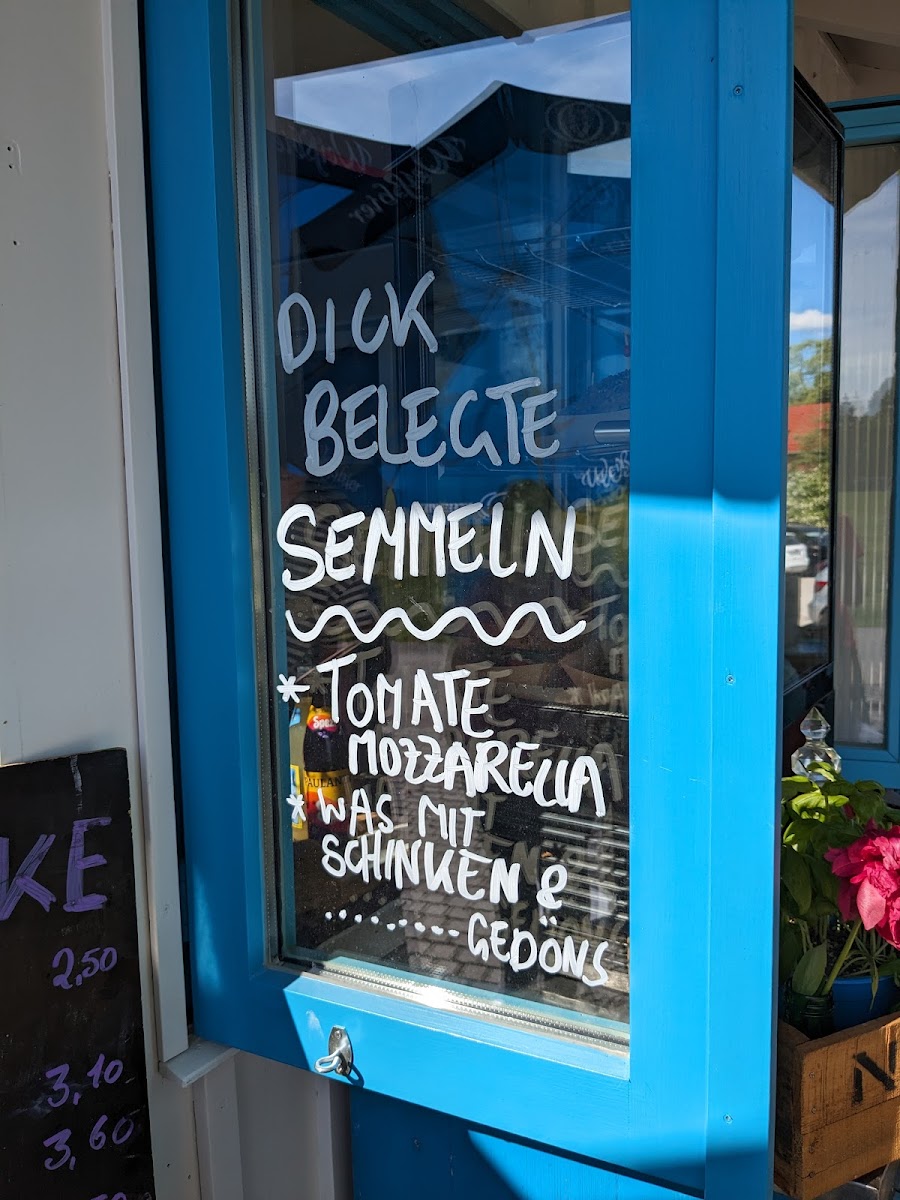 DICK
BELEGTE
SEMMELN
* TOMATE
MOZZARELLA
* WAS MIT
SCHINKEN &
........ GEDÖNS
KE
2,50
3,10
3,60
50
Spezi
PAULAN
Weißbier
N